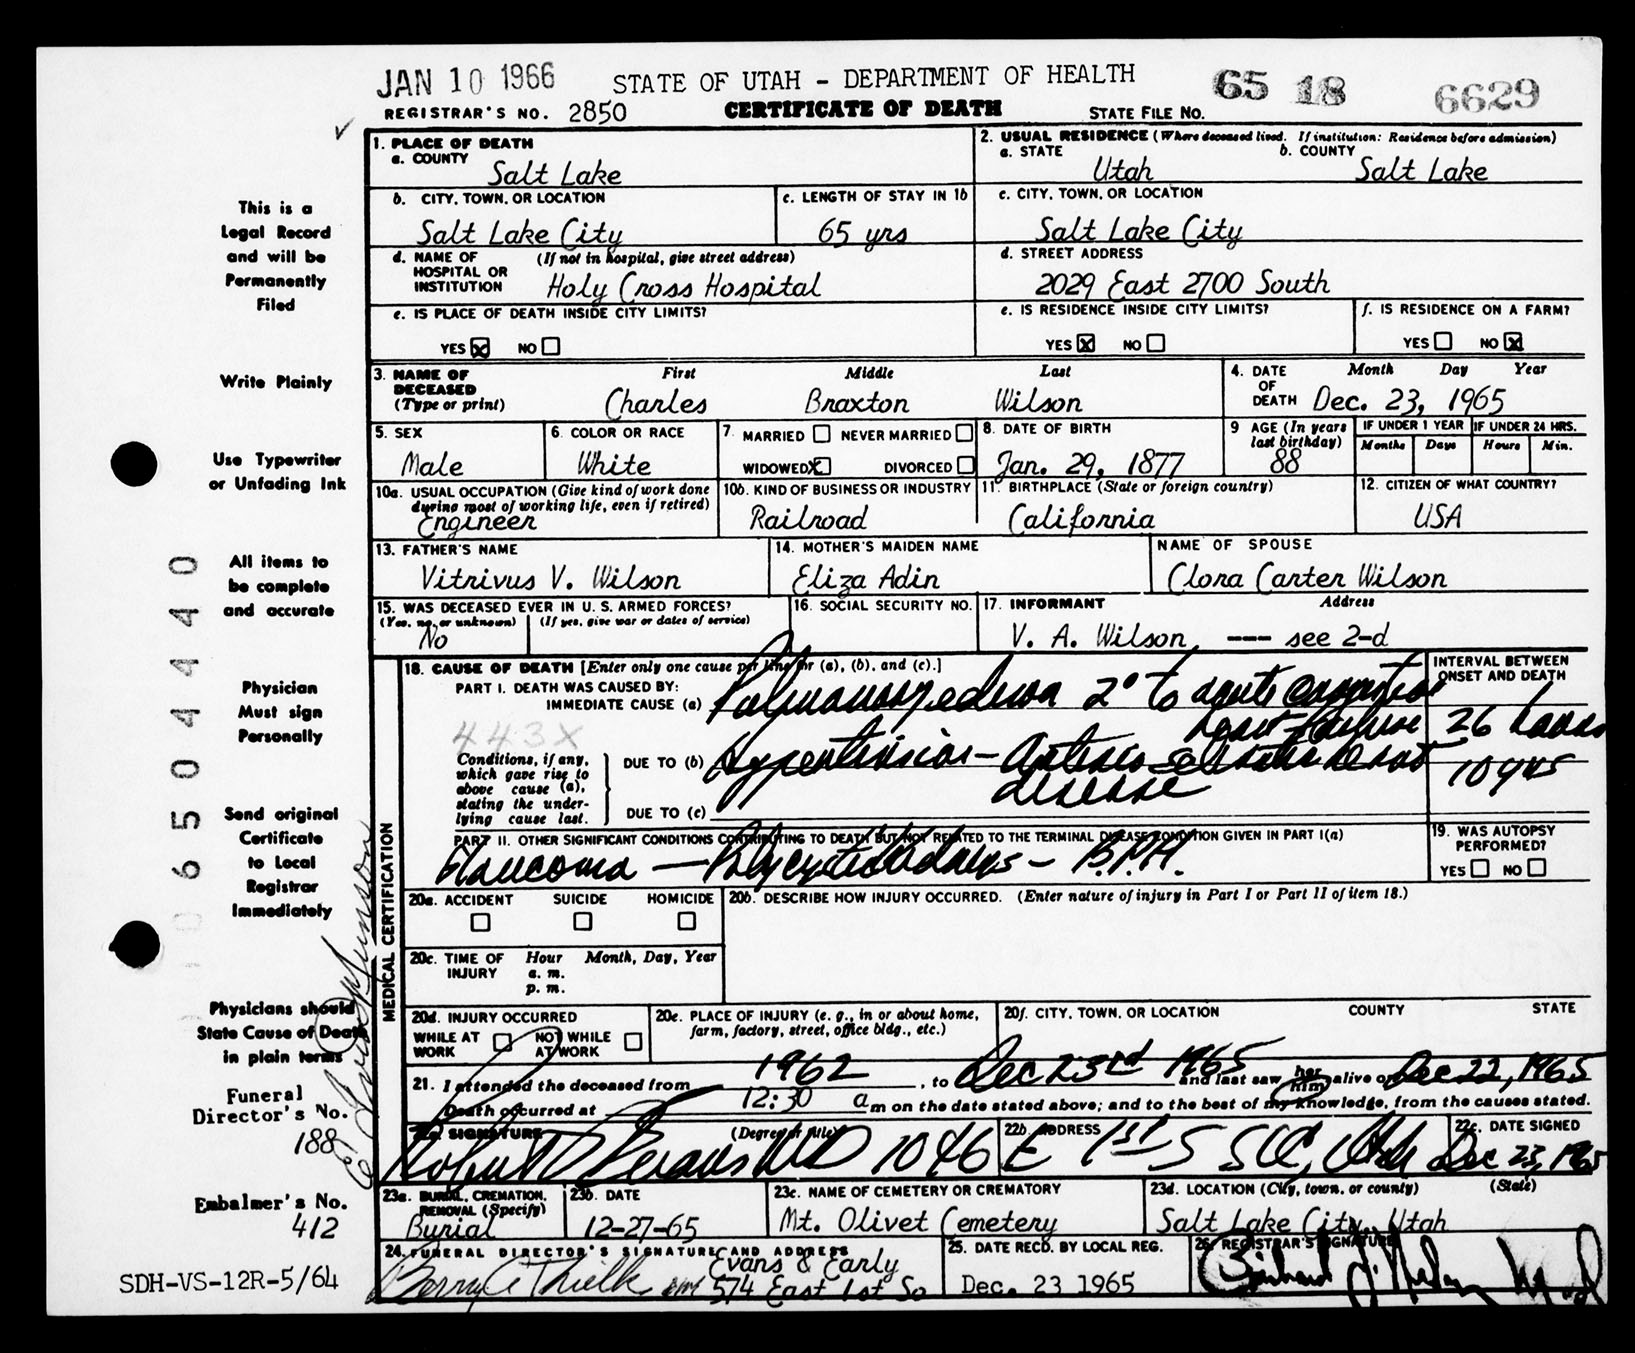 JAN 10 1966 STATE OF UTAH - DEPARTMENT OF HEALTH 65 18 6629
REGISTRAR'S NO. 2850 CERTIFICATE OF DEATH STATE FILE NO.
1. PLACE OF DEATH
a. COUNTY
Salt Lake
2. USUAL RESIDENCE (Where deceased lived. If institution: Residence before admission)
a. STATE b. COUNTY
Utah Salt Lake
b. CITY, TOWN, OR LOCATION
Salt Lake City
c. LENGTH OF STAY IN 1b
65 yrs
c. CITY, TOWN, OR LOCATION
Salt Lake City
d. NAME OF HOSPITAL OR INSTITUTION (If not in hospital, give street address)
Holy Cross Hospital
d. STREET ADDRESS
2029 East 2700 South
e. IS PLACE OF DEATH INSIDE CITY LIMITS?
YES X NO
e. IS RESIDENCE INSIDE CITY LIMITS?
YES X NO
f. IS RESIDENCE ON A FARM?
YES NO X
3. NAME OF DECEASED (Type or print)
First Middle Last
Charles Braxton Wilson
4. DATE OF DEATH Month Day Year
Dec. 23, 1965
5. SEX
Male
6. COLOR OR RACE
White
7. MARRIED NEVER MARRIED
WIDOWED X DIVORCED
8. DATE OF BIRTH
Jan. 29, 1877
9 AGE (In years last birthday)
88
IF UNDER 1 YEAR
Months Days
IF UNDER 24 HRS.
Hours Min.
10a. USUAL OCCUPATION (Give kind of work done during most of working life, even if retired)
Engineer
10b. KIND OF BUSINESS OR INDUSTRY
Railroad
11. BIRTHPLACE (State or foreign country)
California
12. CITIZEN OF WHAT COUNTRY?
USA
13. FATHER'S NAME
Vitrivus V. Wilson
14. MOTHER'S MAIDEN NAME
Eliza Adin
NAME OF SPOUSE
Clora Carter Wilson
15. WAS DECEASED EVER IN U.S. ARMED FORCES?
(Yes, no, or unknown) (If yes, give war or dates of service)
No
16. SOCIAL SECURITY NO.
17. INFORMANT Address
V. A. Wilson --- see 2-d
MEDICAL CERTIFICATION
18. CAUSE OF DEATH [Enter only one cause per line for (a), (b), and (c).]
PART I. DEATH WAS CAUSED BY:
IMMEDIATE CAUSE (a) Pulmonary edema 2° to acute congestive
heart failure
443X
Conditions, if any, which gave rise to above cause (a), stating the underlying cause last.
DUE TO (b) Hypertension - Arteriosclerotic heart
disease
DUE TO (c)
INTERVAL BETWEEN ONSET AND DEATH
26 hours
10 yrs
PART II. OTHER SIGNIFICANT CONDITIONS CONTRIBUTING TO DEATH BUT NOT RELATED TO THE TERMINAL DISEASE CONDITION GIVEN IN PART I(a)
Glaucoma - - B.P.H.
19. WAS AUTOPSY PERFORMED?
YES NO
20a. ACCIDENT SUICIDE HOMICIDE
20b. DESCRIBE HOW INJURY OCCURRED. (Enter nature of injury in Part I or Part II of item 18.)
20c. TIME OF INJURY Hour Month, Day, Year
a. m.
p. m.
20d. INJURY OCCURRED
WHILE AT WORK NOT WHILE AT WORK
20e. PLACE OF INJURY (e. g., in or about home, farm, factory, street, office bldg., etc.)
20f. CITY, TOWN, OR LOCATION COUNTY STATE
21. I attended the deceased from 1962, to Dec 23rd 1965 and last saw her him alive on Dec 22, 1965
Death occurred at 12:30 a m on the date stated above; and to the best of my knowledge, from the causes stated.
22a. SIGNATURE (Degree or title)
Robert D Evans MD
22b. ADDRESS
1046 E 1st S SLC, Utah
22c. DATE SIGNED
Dec 23, 1965
23a. BURIAL, CREMATION, REMOVAL (Specify)
Burial
23b. DATE
12-27-65
23c. NAME OF CEMETERY OR CREMATORY
Mt. Olivet Cemetery
23d. LOCATION (City, town, or county) (State)
Salt Lake City, Utah
24. FUNERAL DIRECTOR'S SIGNATURE AND ADDRESS
Evans & Early
574 East 1st So
25. DATE RECD. BY LOCAL REG.
Dec. 23 1965
26. REGISTRAR'S SIGNATURE
This is a
Legal Record
and will be
Permanently
Filed
Write Plainly
Use Typewriter
or Unfading Ink
All items to
be complete
and accurate
Physician
Must sign
Personally
Send original
Certificate
to Local
Registrar
Immediately
Physicians should
State Cause of Death
in plain terms
Funeral
Director's No.
188
Embalmer's No.
412
SDH-VS-12R-5/64
06504440